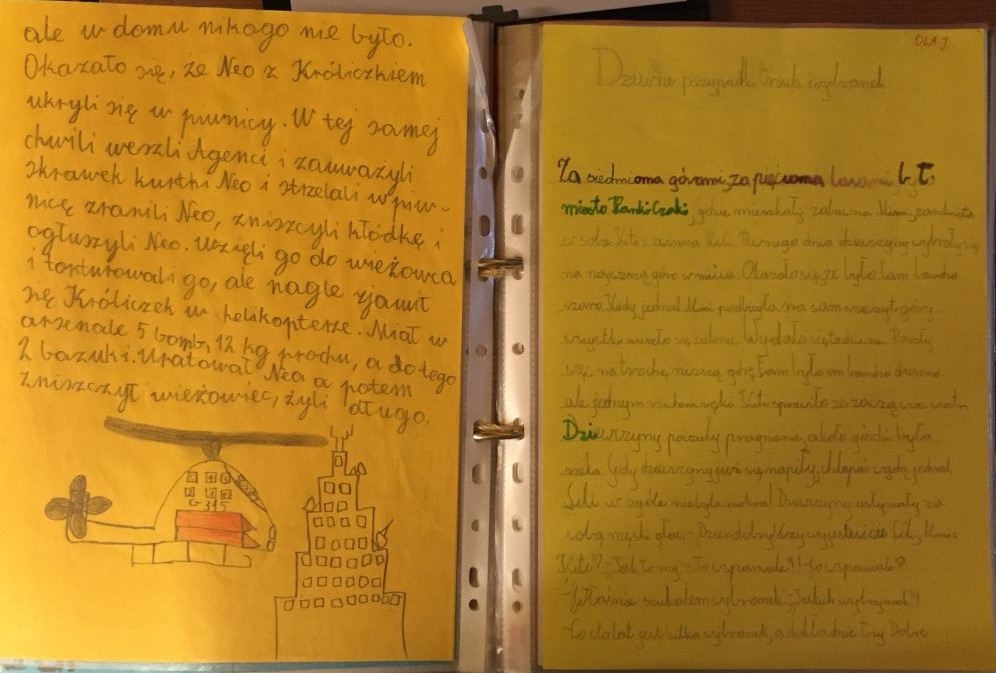 ale w domu nikogo nie było.
Okazało się, że Neo z Króliczkiem
ukryli się w piwnicy. W tej samej
chwili weszli Agenci i zauważyli
skrawek kurtki Neo i strzelali w piw-
nicę zranili Neo, zniszczyli kłódkę i
ogłuszyli Neo. Wzięli go do wieżowca
i torturowali go, ale nagle zjawił
się Króliczek w helikopterze. Miał w
arsenale 5 bomb, 12 kg prochu, a do tego
2 bazuki. Uratował Nea a potem
zniszczył wieżowiec, żyli długo.
G 315
OLA J.
Dziwne przypadki trzech wybranek
Za siedmioma górami, za pięcioma lasami
miasto gdzie mieszkały zabawna Mimi,
w sobie Kite i Pewnego dnia dziewczyny wybrały się
na najwyższą górę w mieście. Okazało się, że było tam bardzo
szaro. Kiedy jednak Mimi na sam szczyt góry
wszystko się zielone. Wydało się to dziwne. Poszły
więc na trochę niższą górę, tam było
ale jednym ruchem ręki Kite sprawiła że
Dziewczyny poczuły pragnienie, a koło górki była
rzeka. Gdy dziewczyny się napiły, wodą jednak
Lili w ogóle nie była mokra! Dziewczyny usłyszały za
sobą męski głos - Dzień dobry! Czy wy jesteście Lili, Mimi i
Kite? - Tak to my. - To wspaniale!! - Co wspaniale?
- Właśnie szukałem wybranek. - Jakich wybranek?!
- Co sto lat jest kilka wybranek, a dokładnie trzy. Dobre